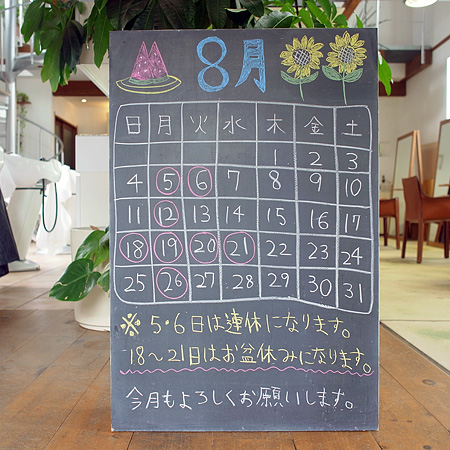 8月
日 月 火 水 木 金 土
1 2 3
4 5 6 7 8 9 10
11 12 13 14 15 16 17
18 19 20 21 22 23 24
25 26 27 28 29 30 31
※5・6日は連休になります。
18〜21日はお盆休みになります。
今月もよろしくお願いします。